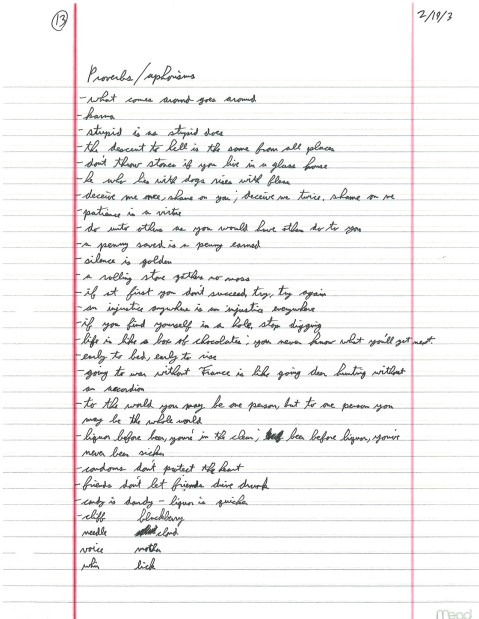 13
2/19/3
Proverbs/aphorisms
- what comes around goes around
- karma
- stupid is as stupid does
- the descent to hell is the same from all places
- don't throw stones if you live in a glass house
- he who lies with dogs rises with fleas
- deceive me once, shame on you; deceive me twice, shame on me
- patience is a virtue
- do unto others as you would have others do to you
- a penny saved is a penny earned
- silence is golden
- a rolling stone gathers no moss
- if at first you don't succeed, try, try again
- an injustice anywhere is an injustice everywhere
- if you find yourself in a hole, stop digging
- life is like a box of chocolates; you never know what you'll get next
- early to bed, early to rise
- going to war without France is like going deer hunting without
an accordion
- to the world you may be one person, but to one person you
may be the whole world
- liquor before beer, you're in the clear; beer before liquor, you've
never been sicker
- condoms don't protect the heart
- friends don't let friends drive drunk
- candy is dandy - liquor is quicker
- cliff blackberry
needle cloud
voice mother
whim lick
Mead